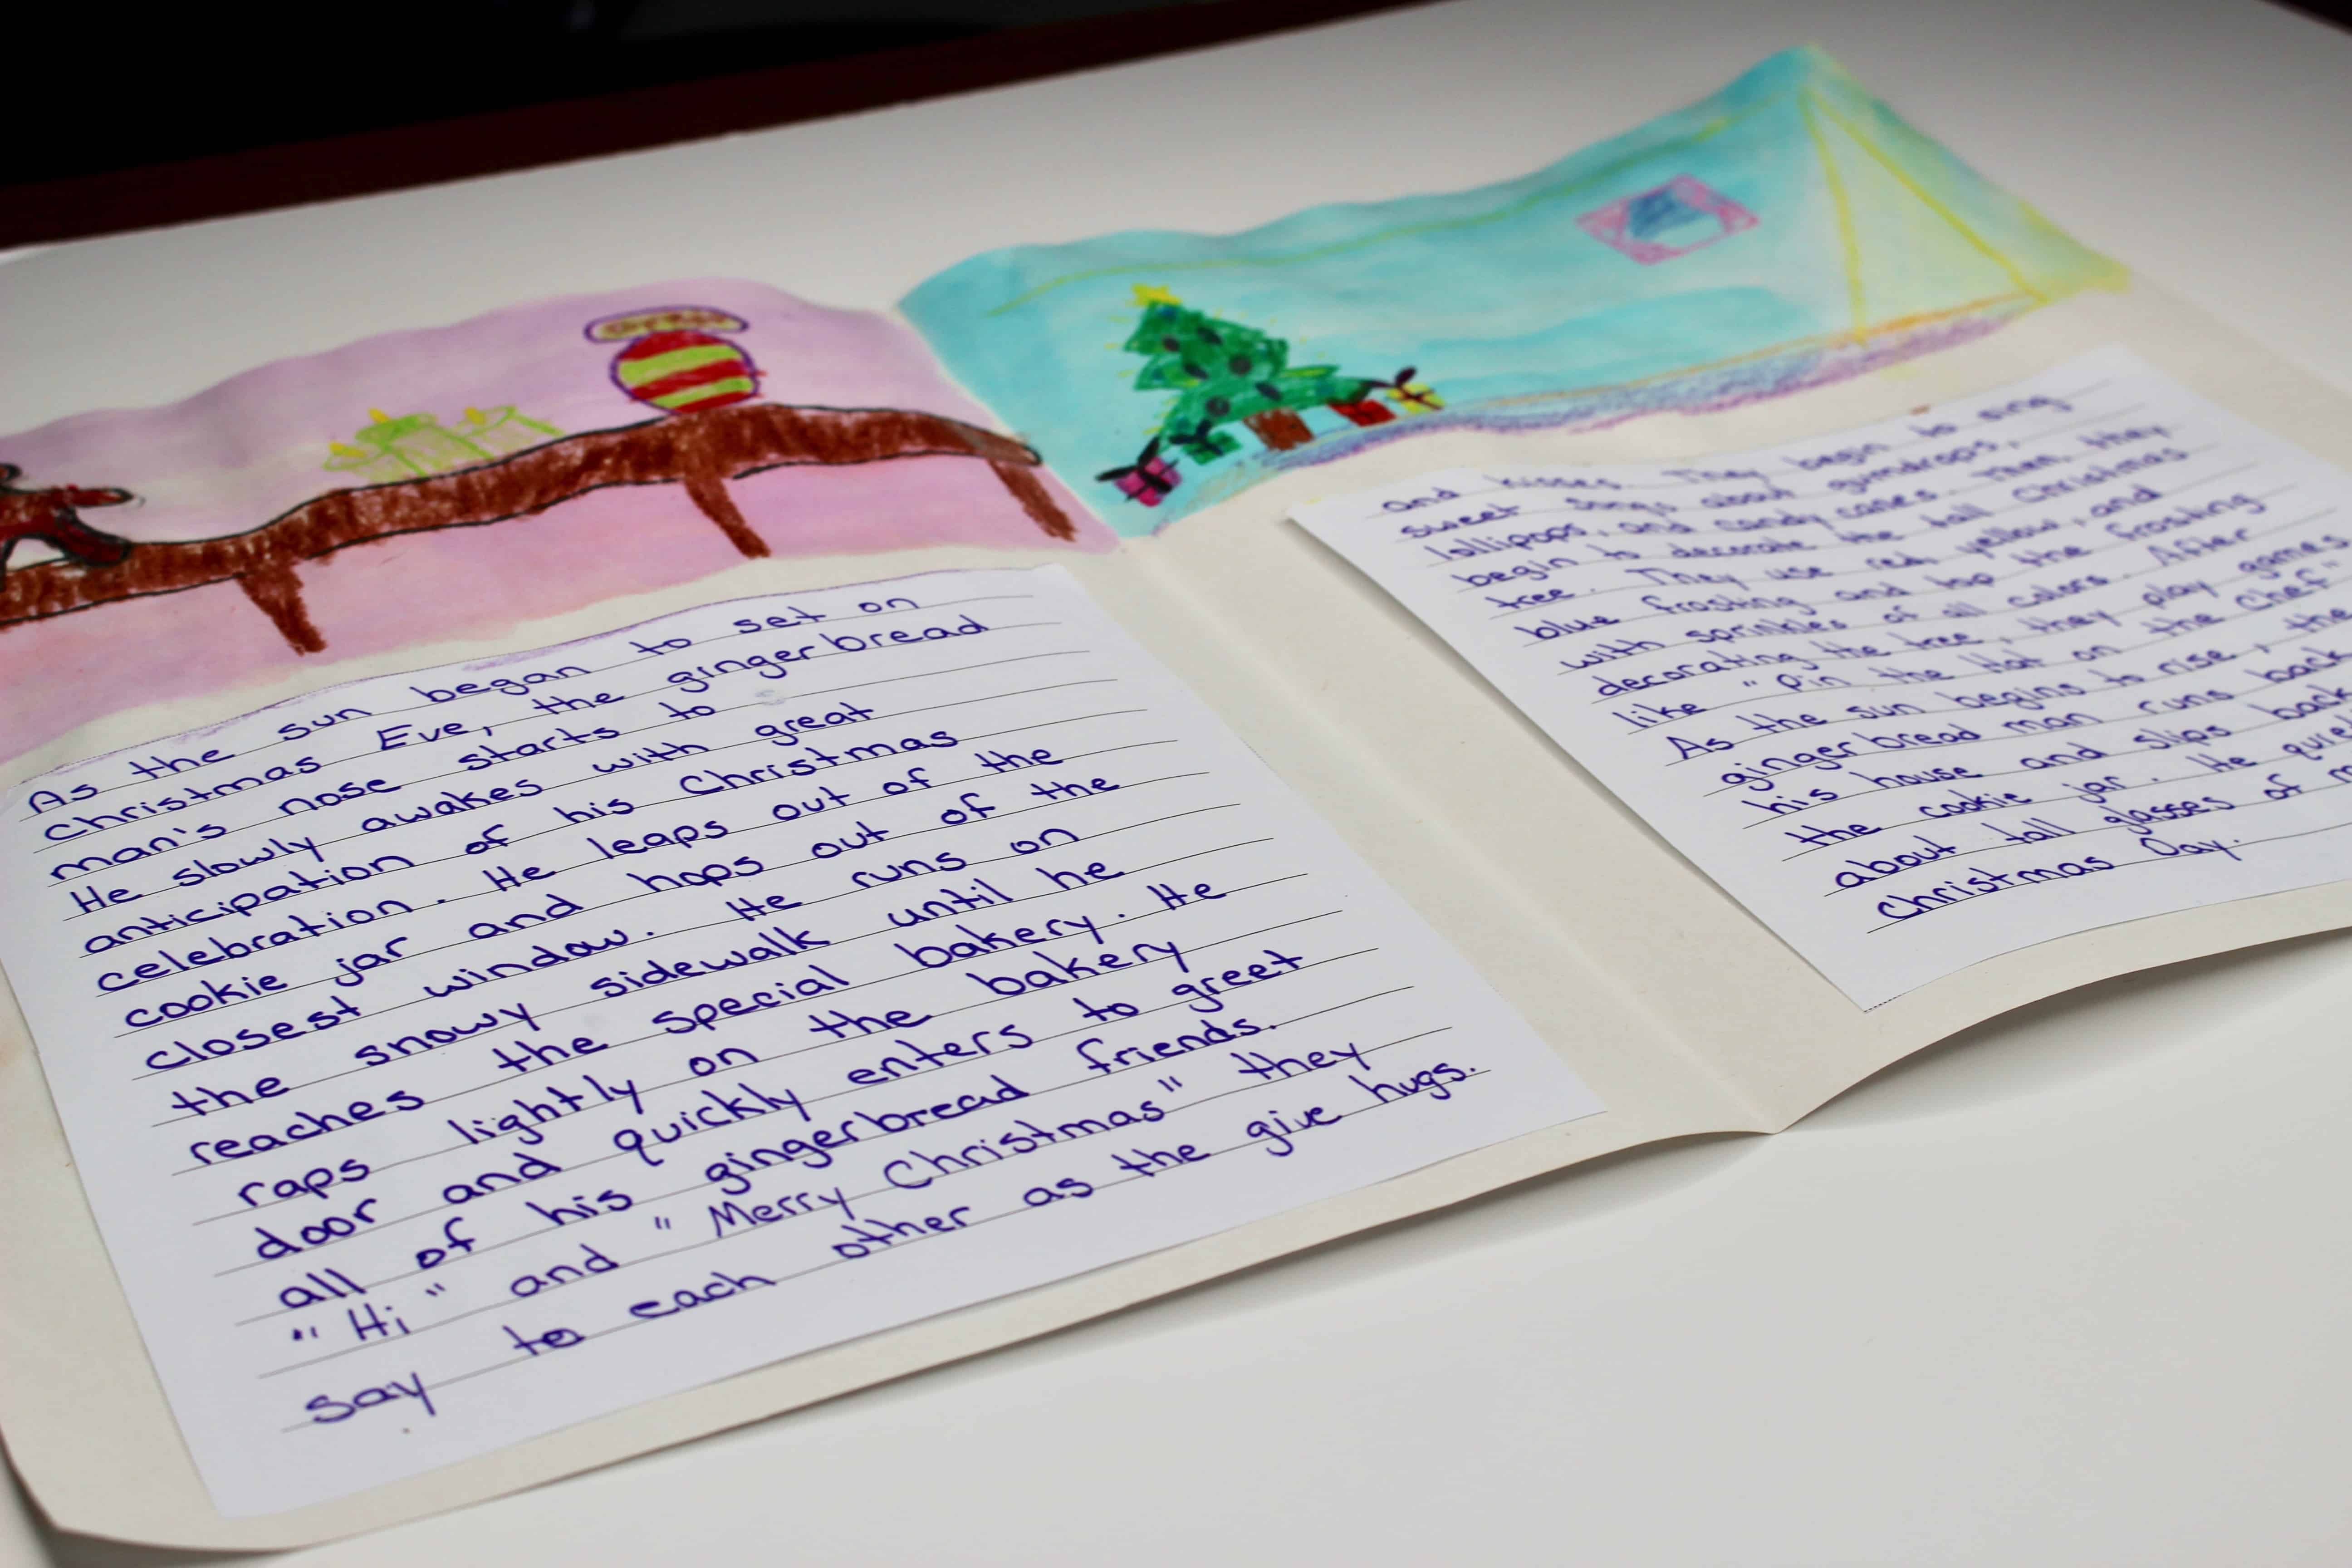 As the sun began to set on
Christmas Eve, the gingerbread
man's nose starts to
He slowly awakes with great
anticipation of his Christmas
celebration. He leaps out of the
cookie jar and hops out of the
closest window. He runs on
the snowy sidewalk until he
reaches the special bakery. He
raps lightly on the bakery
door and quickly enters to greet
all of his gingerbread friends.
"Hi" and "Merry Christmas" they
say to each other as the give hugs.
and kisses. They begin to sing
sweet songs about gumdrops,
lollipops, and candy canes. Then they
begin to decorate the tall Christmas
tree. They use red, yellow, and
blue frosting and top the frosting
with sprinkles of all colors. After
decorating the tree, they play games
like "Pin the Hat on the Chef"
As the sun begins to rise, the
gingerbread man runs back
his house and slips back
the cookie jar. He
about tall glasses of
Christmas Day.